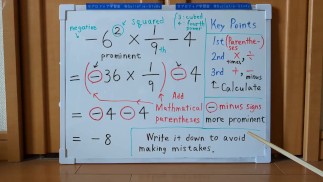 negative squared 3: cubed
4: fourth power
−6² × 1/9 − 4
prominent th
= (−36 × 1/9) − 4
= −4 −4
= −8
Add
Mathmatical
parentheses
Key Points
1st (Parentheses)
2nd × ÷
times,
3rd +, −
minus
↑ Calculate
− minus signs
more prominent.
Write it down to avoid
making mistakes.